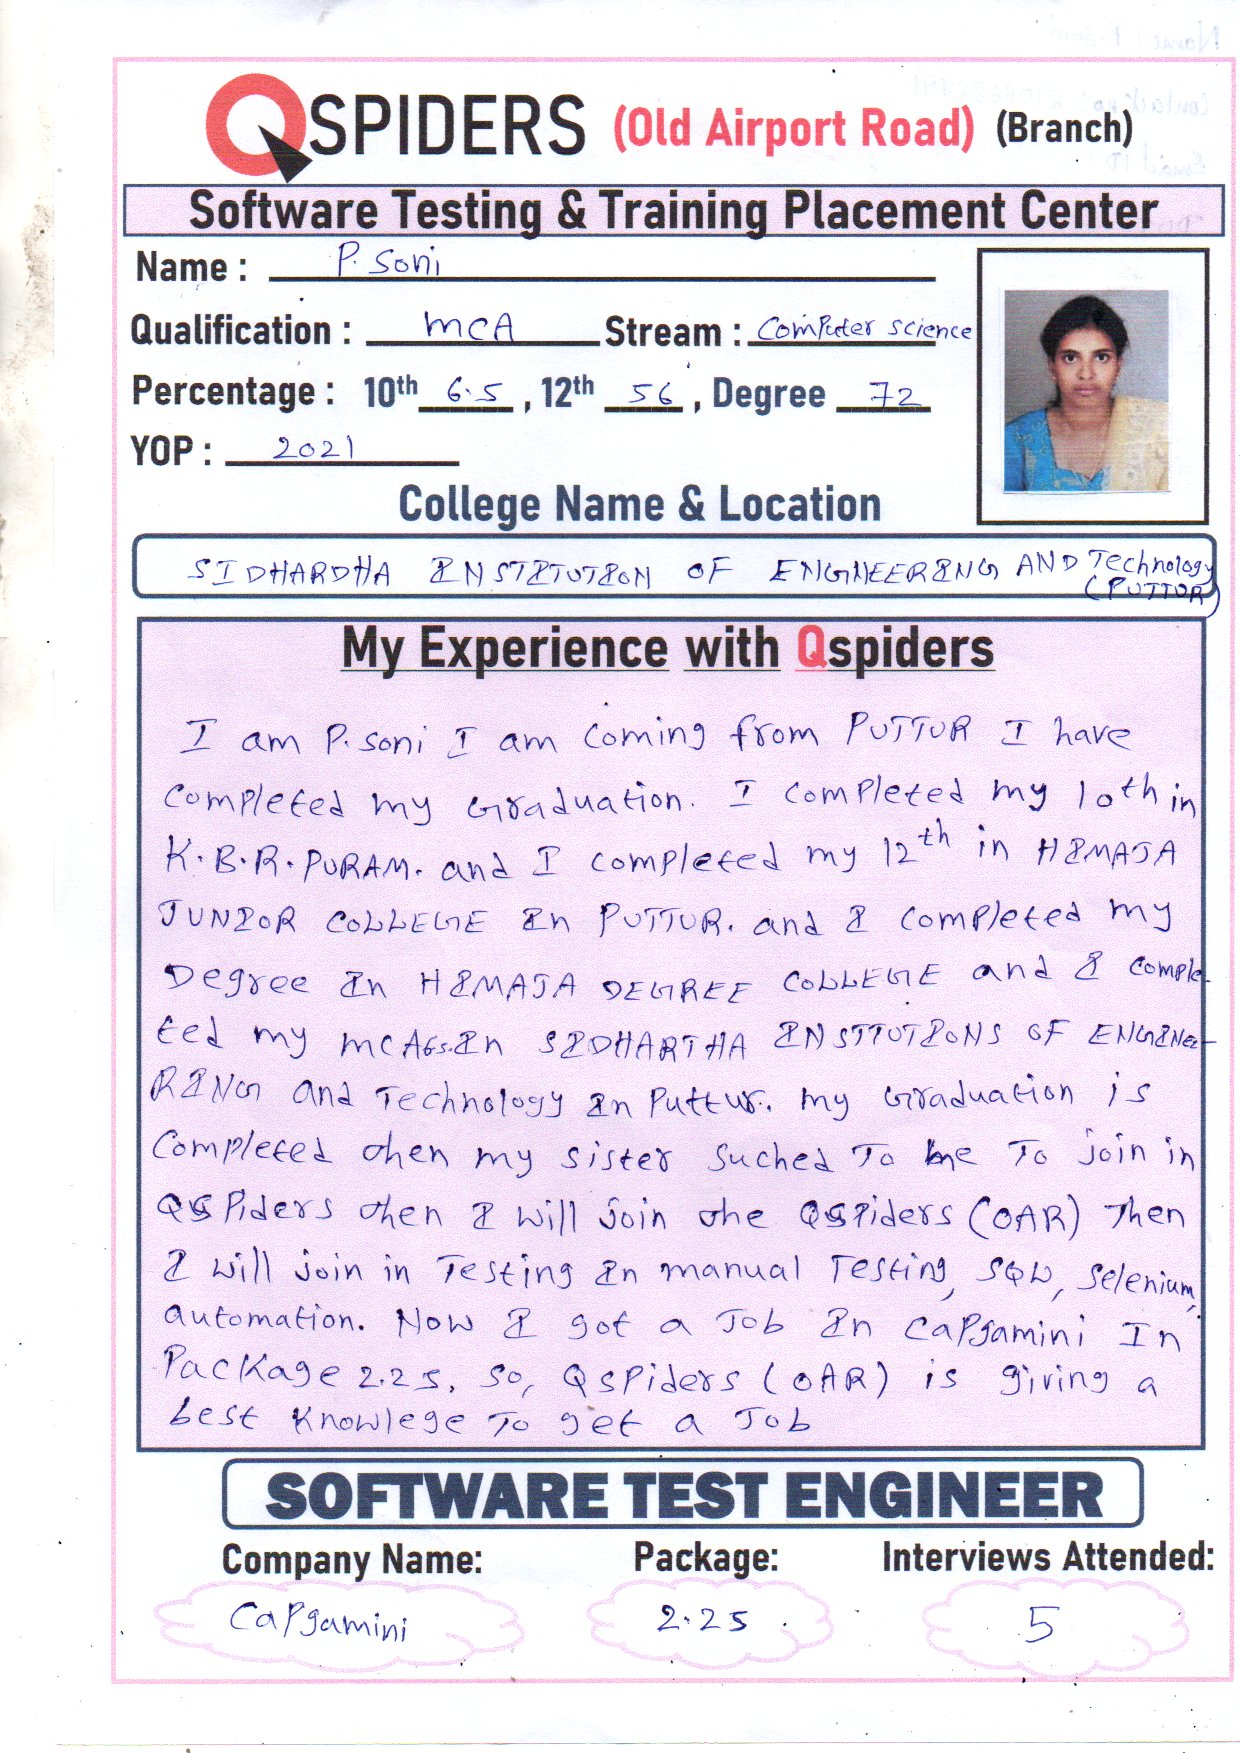 QSPIDERS (Old Airport Road) (Branch)
Software Testing & Training Placement Center
Name : P. Soni
Qualification : MCA Stream : Computer science
Percentage : 10th 6.5 , 12th 56 , Degree 72
YOP : 2021
College Name & Location
SIDHARDHA INSTITUTION OF ENGINEERING AND Technology
(PUTTUR)
My Experience with Qspiders
I am P. soni I am coming from PUTTUR I have
completed my Graduation. I completed my 10th in
K.B.R. PURAM. and I completed my 12th in HIMAJA
JUNIOR COLLEGE In PUTTUR. and I completed my
Degree In HIMAJA DEGREE COLLEGE and I comple-
ted my MCA In SIDHARTHA INSTTUTIONS OF ENGINEE-
RING and Technology In Puttur. my Graduation is
completed then my sister suched To me To join in
QSPiders then I will join the QSPiders (OAR) Then
I will join in Testing In manual Testing, SQL, Selenium,
automation. Now I got a Job In CaPgamini In
Package 2.25, So, QSPiders (OAR) is giving a
best Knowlege To get a Job
SOFTWARE TEST ENGINEER
Company Name: Package: Interviews Attended:
CaPgamini 2.25 5